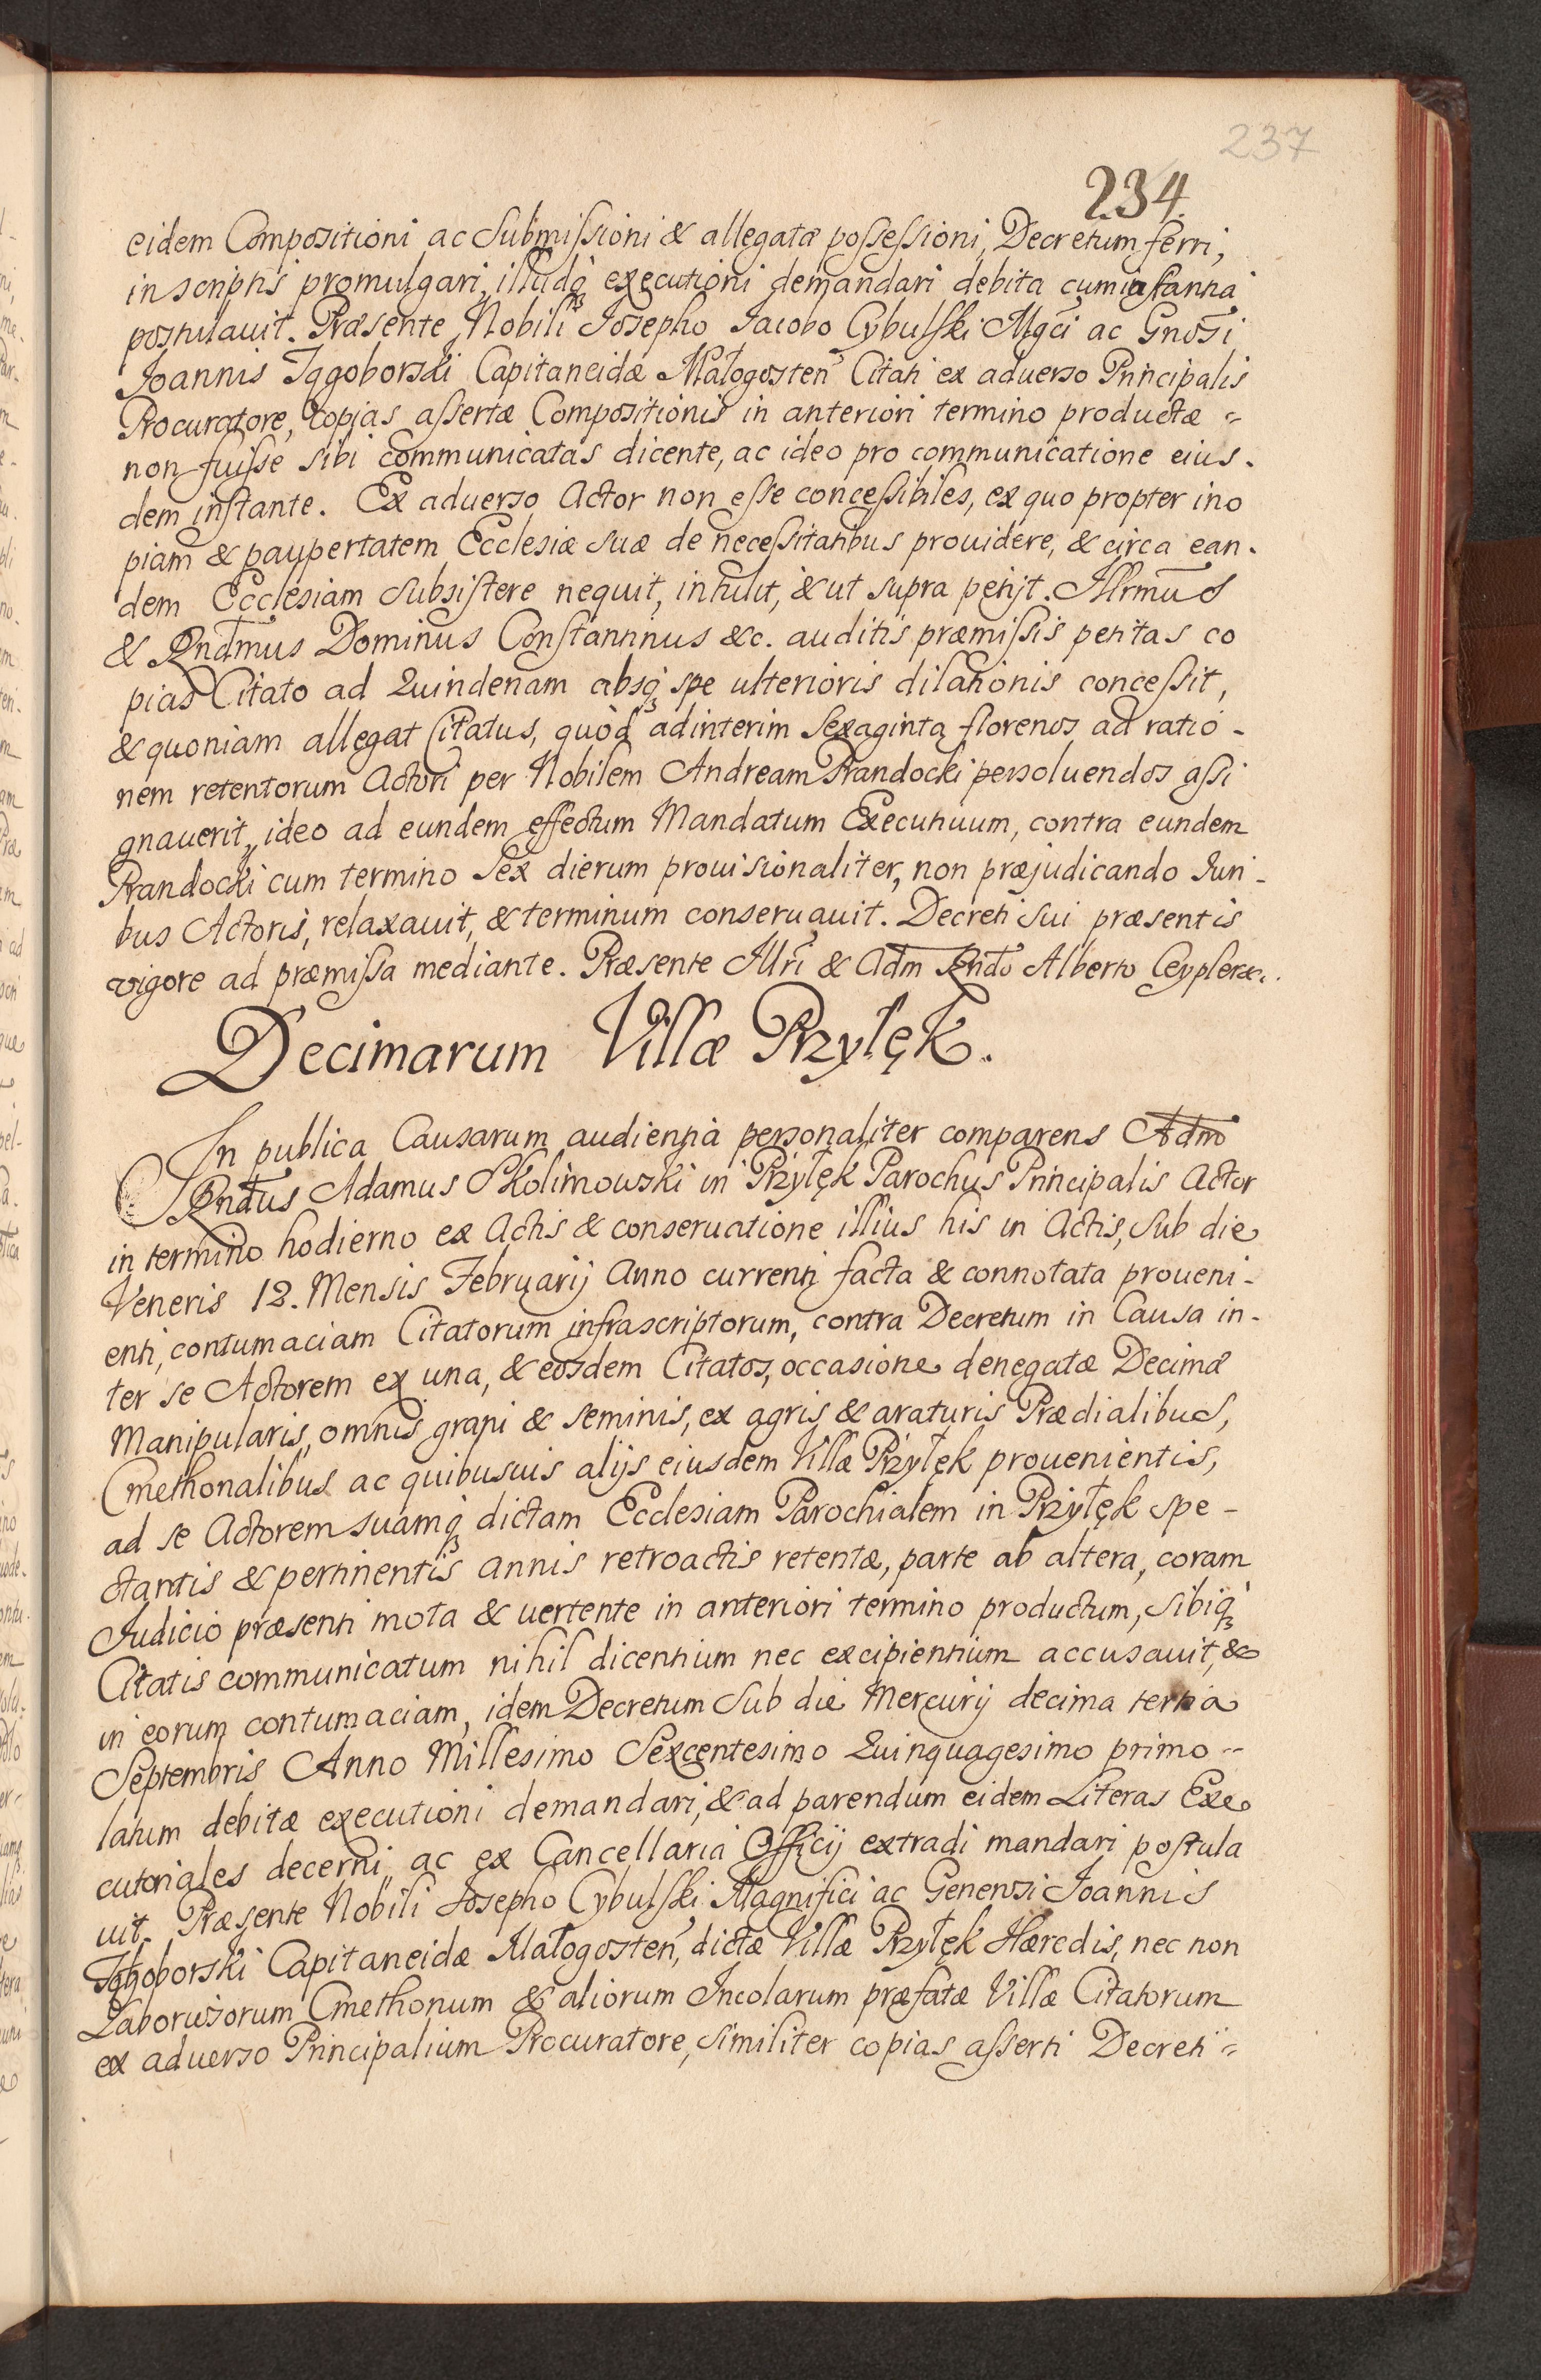 237
234.
eidem Compositioni ac Submissioni & allegatæ possessioni, Decretum ferri,
in scriptis promulgari, illudq; executioni demandari debita cum instantia
postulauit. Præsente Nobili Josepho Jacobo Cybulski Mgci ac Gnosi
Joannis Tggoborski Capitaneidæ Małogosten Citati ex aduerso Principalis
Procuratore, copias assertæ Compositionis in anteriori termino productæ =
non fuisse sibi communicatas dicente, ac ideo pro communicatione eius-
dem instante. Ex aduerso Actor non esse concessibiles, ex quo propter ino
piam & paupertatem Ecclesiæ suæ de necessitatibus prouidere, & circa ean-
dem Ecclesiam subsistere nequit, intulit, & ut supra petijt. Illrmus
& Rndmus Dominus Constantinus &c. auditis præmissis petitas co
pias Citato ad Quindenam absq; spe ulterioris dilationis concessit,
& quoniam allegat Citatus, quòd adinterim Sexaginta florenos ad ratio-
nem retentorum Actori per Nobilem Andream Prandocki persoluendos assi
gnauerit, ideo ad eundem effectum Mandatum Executiuum, contra eundem
Prandocki cum termino Sex dierum prouisionaliter, non præjudicando Juri-
bus Actoris, relaxauit, & terminum conseruauit. Decreti sui præsentis
vigore ad præmissa mediante. Præsente Illri & Adm Rndo Alberto Ceypler &c.
Decimarum Villæ Przyłęk.
In publica Causarum audientia personaliter comparens Adm
Rndus Adamus Skolimowski in Przyłęk Parochus Principalis Actor
in termino hodierno ex Actis & conseruatione illius his in Actis, sub die
Veneris 12. Mensis Februarij Anno currenti facta & connotata proueni-
enti, contumaciam Citatorum infrascriptorum, contra Decretum in Causa in-
ter se Actorem ex una, & eosdem Citatos, occasione denegatæ Decimæ
Manipularis, omnis grani & seminis, ex agris & araturis Prædialibus,
Cmethonalibus ac quibusuis alijs eiusdem Villæ Przyłęk prouenientis,
ad se Actorem suamq; dictam Ecclesiam Parochialem in Przyłęk spe-
ctantis & pertinentis annis retroactis retentæ, parte ab altera, coram
Judicio præsenti mota & uertente in anteriori termino productum, sibiq;
Citatis communicatum nihil dicentium nec excipientium accusauit, &
in eorum contumaciam, idem Decretum sub die Mercurij decima tertia
Septembris Anno Millesimo Sexcentesimo Quinquagesimo primo =
latum debitæ executioni demandari, & ad parendum eidem Literas Exe
cutoriales decerni, ac ex Cancellaria Officij extradi mandari postula
uit. Præsente Nobili Josepho Cybulski Magnifici ac Generosi Joannis
Tghoborski Capitaneidæ Małogosten, dictæ Villæ Przyłęk Hæredis, nec non
Laboriosorum Cmethonum & aliorum Incolarum præfatæ Villæ Citatorum
ex aduerso Principalium Procuratore, similiter copias asserti Decreti =